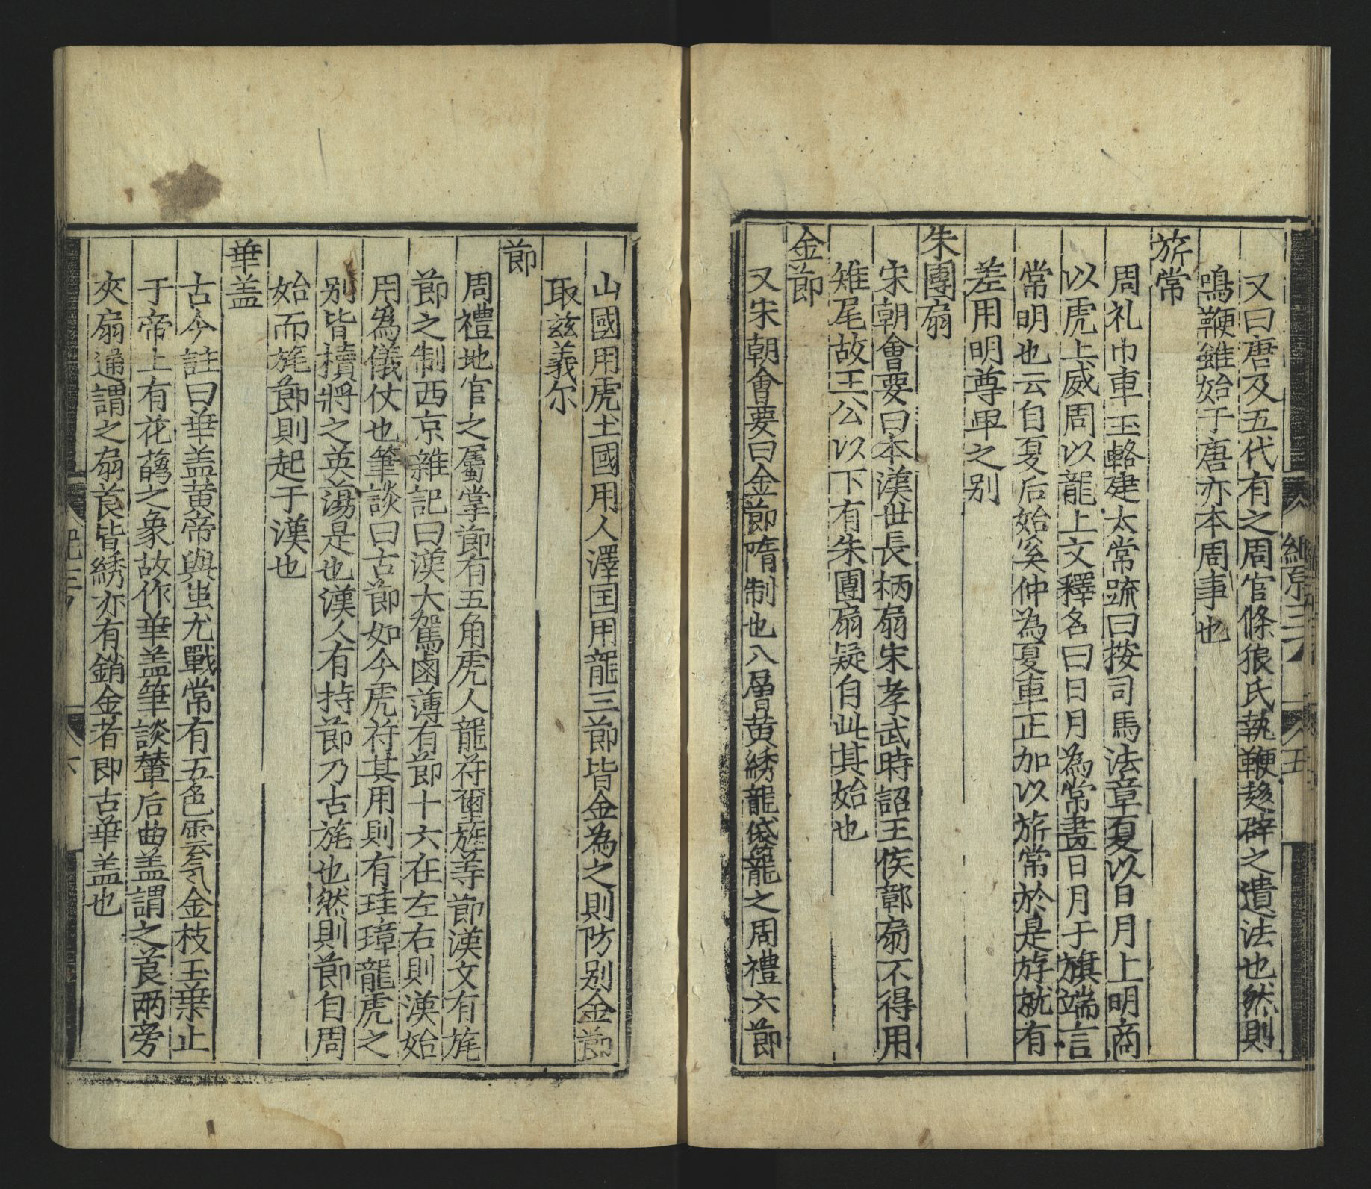 又曰唐及五代有之周官條狼氏執鞭趍辟之遺法也然則
鳴鞭雖始于唐亦本周事也
旂常
周礼巾車玉輅建太常䟽曰按司馬法章夏以日月上明商
以虎上威周以龍上文釋名曰日月為常畫日月于旗端言
常明也云自夏后始奚仲為夏車正加以旂常於是斿就有
差用明尊卑之别
朱團扇
宋朝會要曰本漢世長柄扇宋孝武時詔王侯鄣扇不得用
雉尾故王公以下有朱團扇疑自此其始也
金節
又宋朝會要曰金節隋制也八層黄綉龍袋籠之周禮六節
山國用虎土國用人澤国用龍三節皆金為之則防别金節
取兹義尓
節
周禮地官之屬掌節有五角虎人龍符璽旌等節漢文有旄
節之制西京雜記曰漢大駕鹵薄有節十六在左右則漢始
用為儀仗也筆談曰古節如今虎符其用則有珪璋龍虎之
别皆櫝將之英蕩是也漢人有持節乃古旄也然則節自周
始而旄節則起于漢也
華盖
古今註曰華盖黄帝與蚩尤戰常有五色雲氣金枝玉葉止
于帝上有花蘤之象故作華盖筆談輦后曲盖謂之筤兩旁
夾扇通謂之扇筤皆綉亦有銷金者即古華盖也